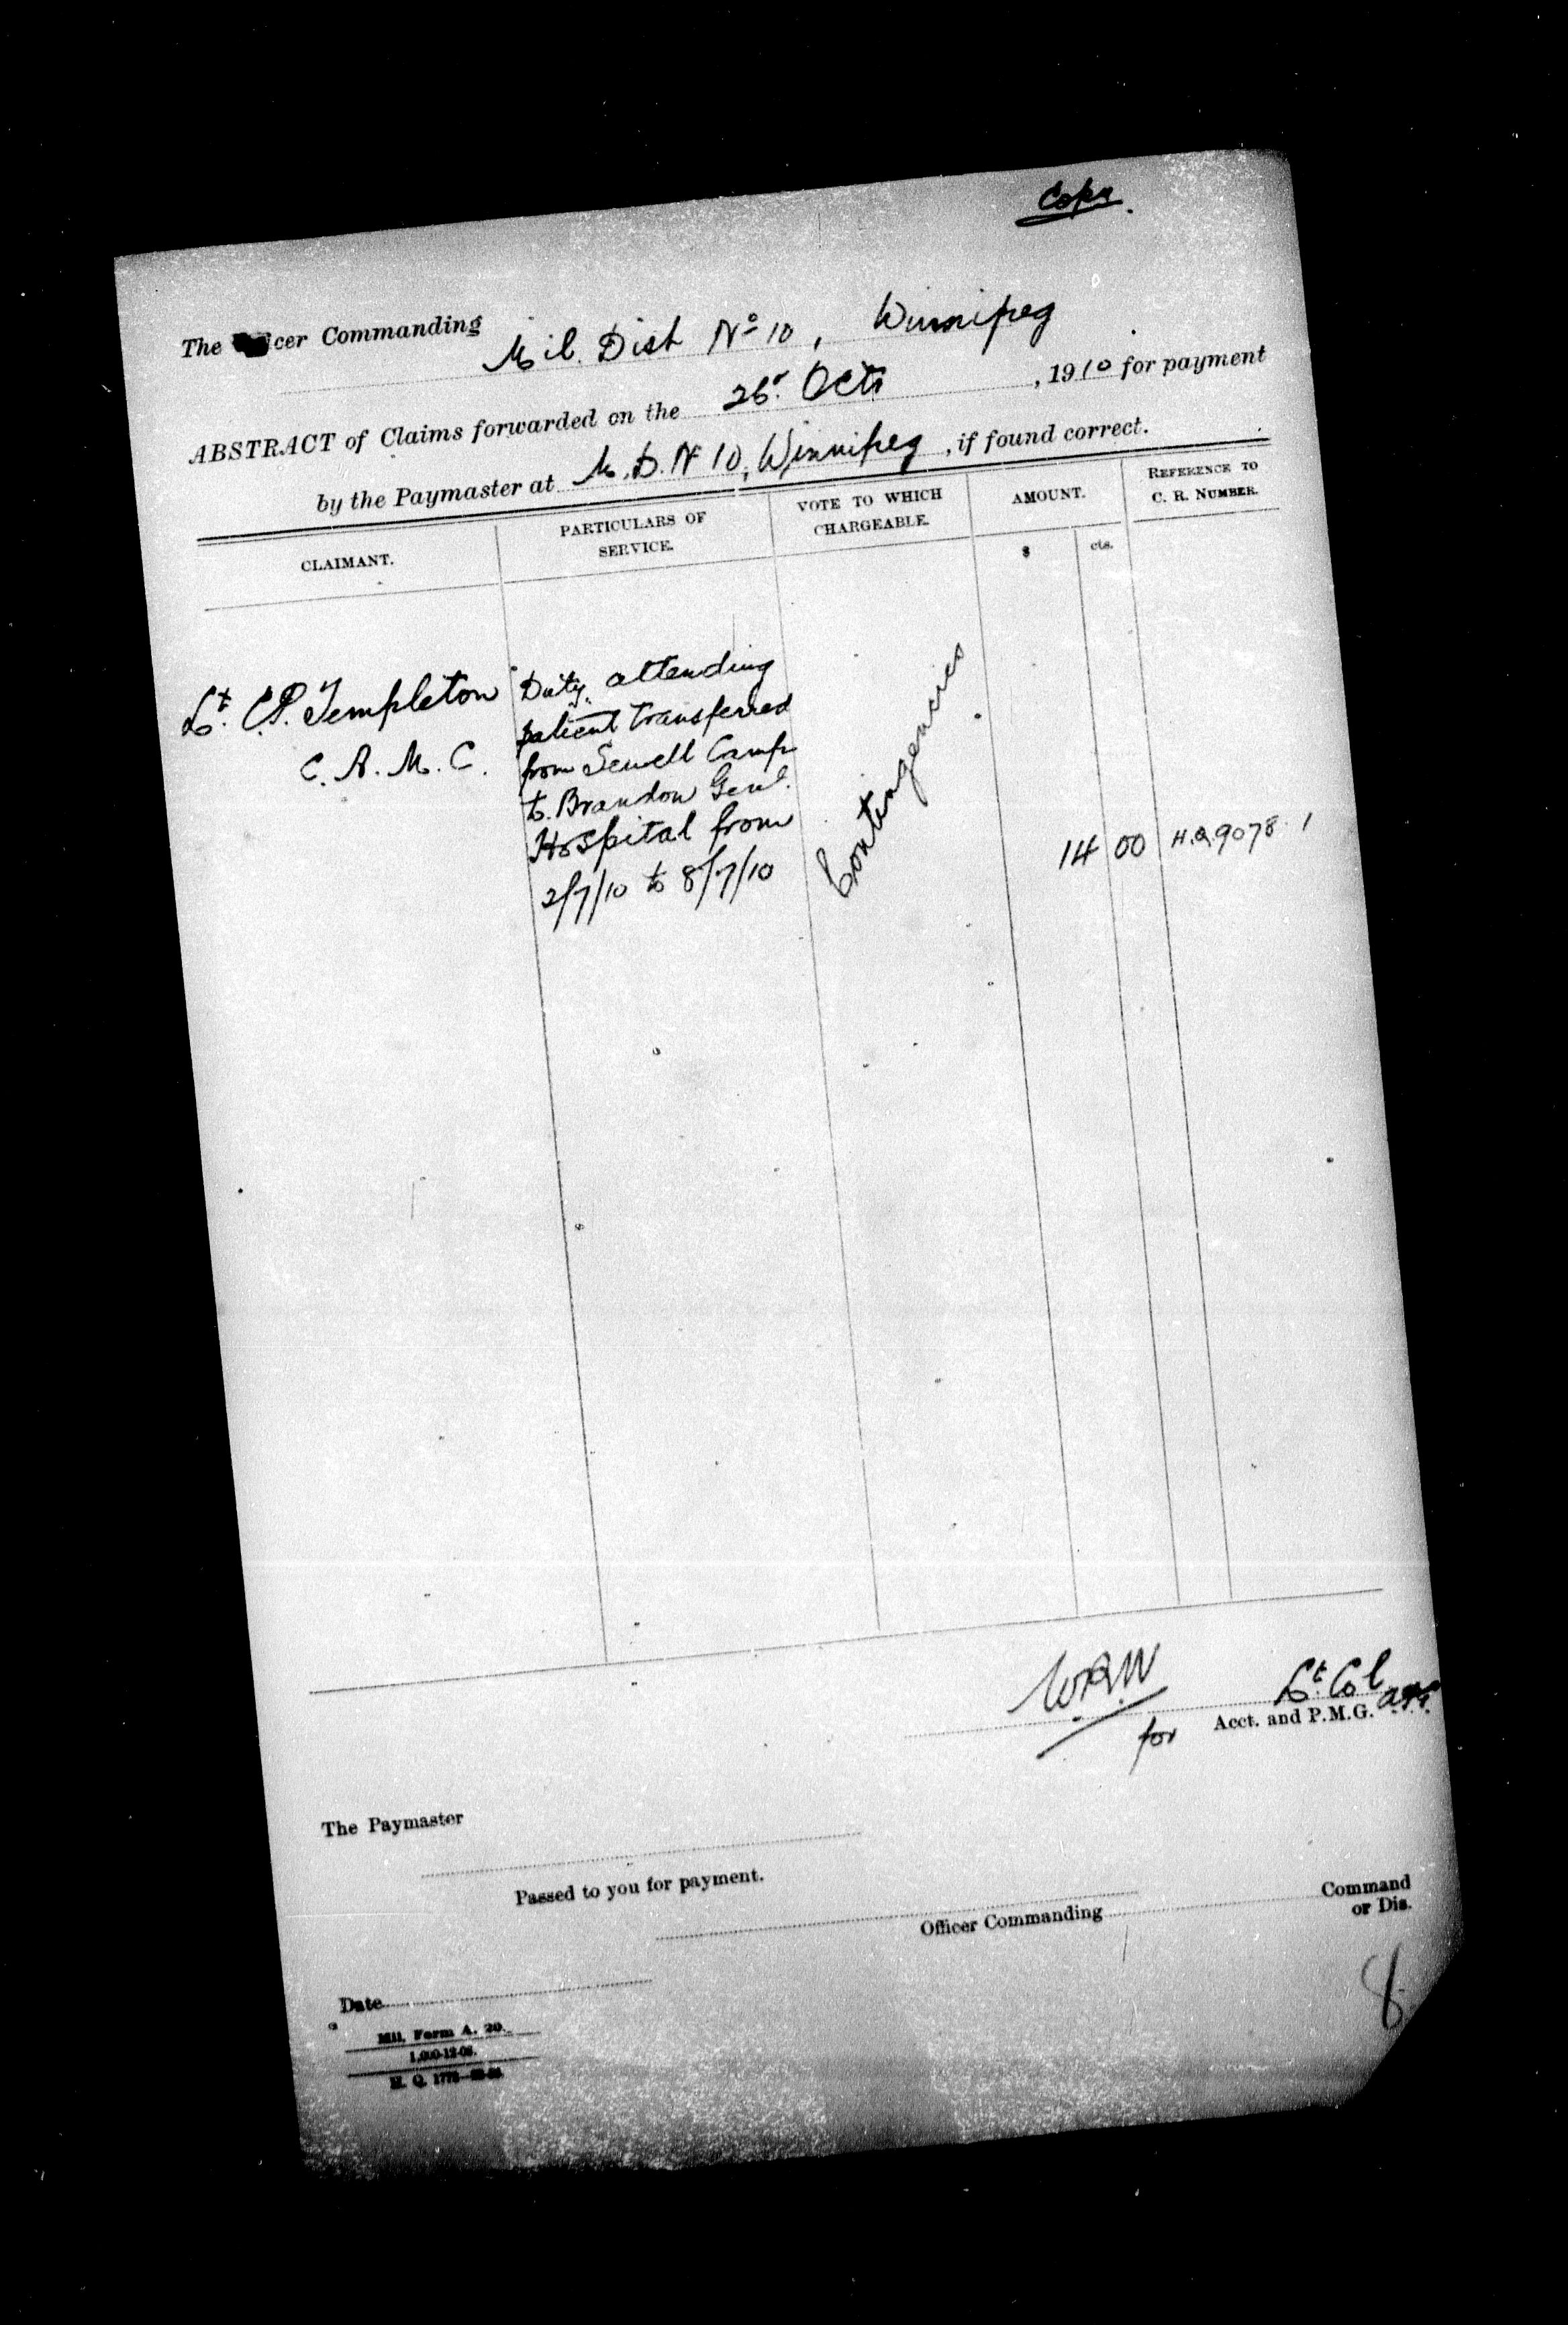 Copy.
The Officer Commanding
Mil. Dist No 10, Winnipeg
ABSTRACT of Claims forwarded on the 26. Octr, 1910 for payment
by the Paymaster at M.D. No 10, Winnipeg, if found correct.
CLAIMANT.
PARTICULARS OF
SERVICE.
VOTE TO WHICH
CHARGEABLE.
AMOUNT.
REFERENCE TO
C. R. NUMBER.
$ cts.
Lt. C.P. Templeton
C. A. M. C.
Duty attending
patient transferred
from Sewell Camp
to Brandon Genl.
Hospital from
2/7/10 to 8/7/10
Contingencies
14 00
H.Q. 9078 1
W.R.W
Lt. Col
for Acct. and P.M.G.
The Paymaster
Passed to you for payment.
Officer Commanding
Command
or Dis.
Date
Mil. Form A. 20.
1,000-12-08.
H. Q. 1772
8